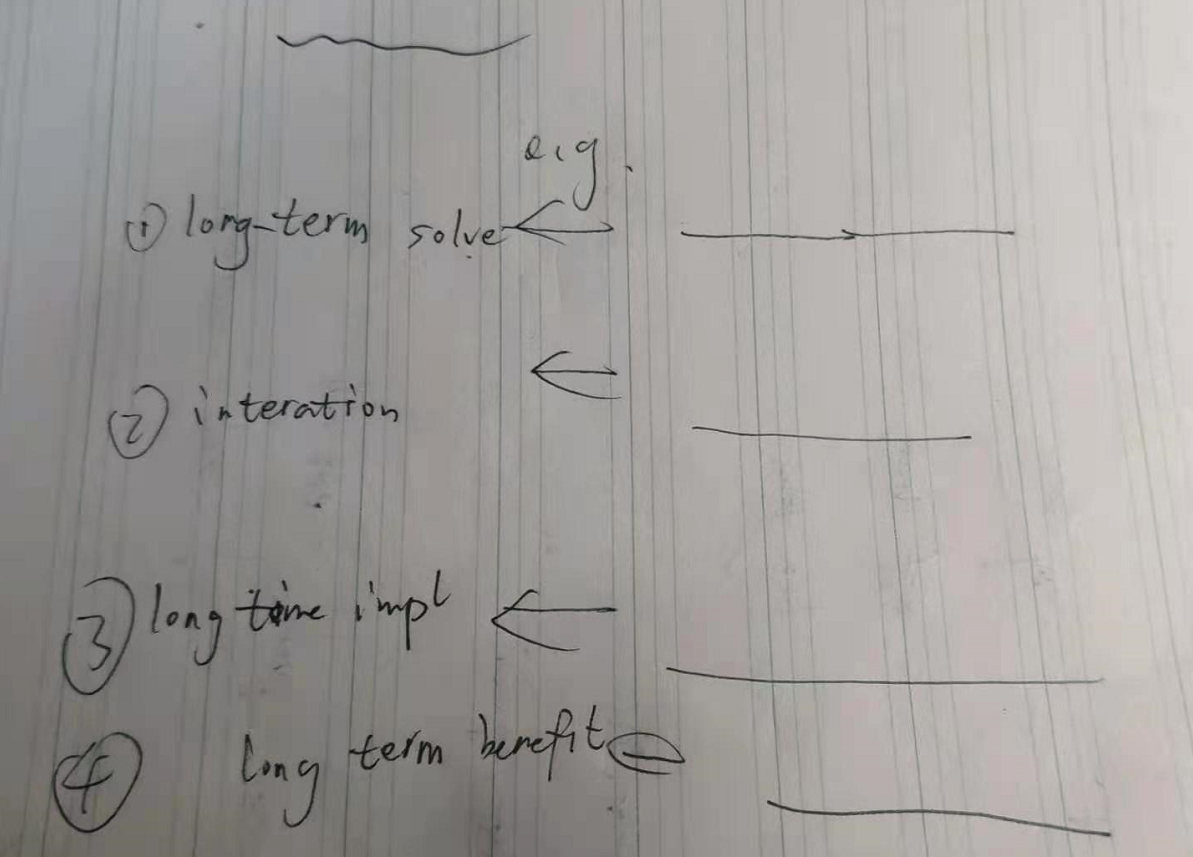 e.g.
① long-term solve
② interation
③ long time impl
④ long term benefit